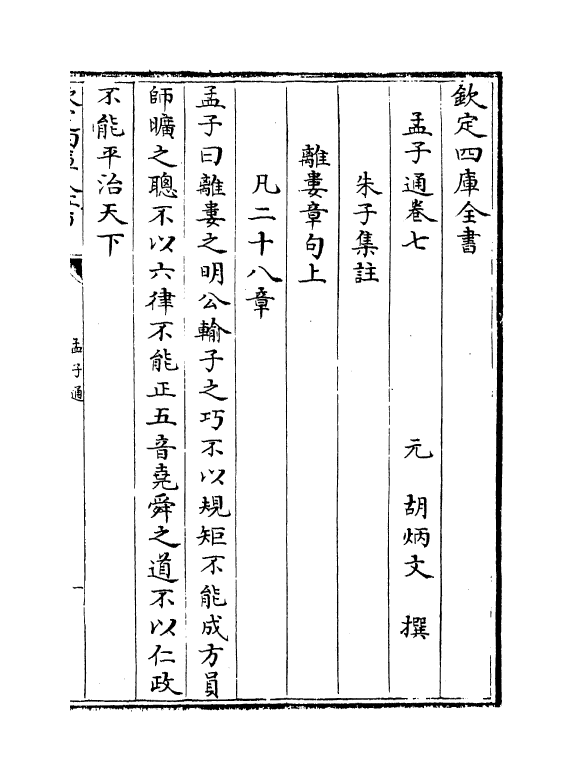 欽定四庫全書
孟子通卷七　元　胡炳文　撰
朱子集註
離婁章句上
凡二十八章
孟子曰離婁之明公輸子之巧不以規矩不能成方員
師曠之聰不以六律不能正五音堯舜之道不以仁政
不能平治天下
孟子通
一